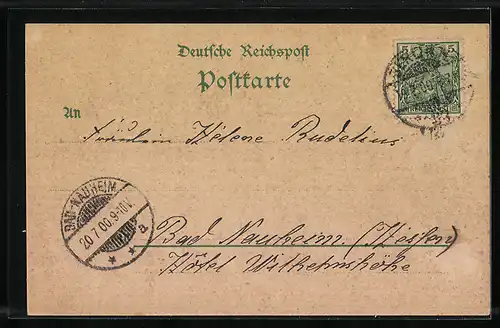 Deutsche Reichspost
Postkarte
5 5
An
Fräulein Helene Rudelius
BAD-NAUHEIM
20.7.00.9-10V.
* * a
Bad Nauheim (Hessen)
Hôtel Wilhelmshöhe